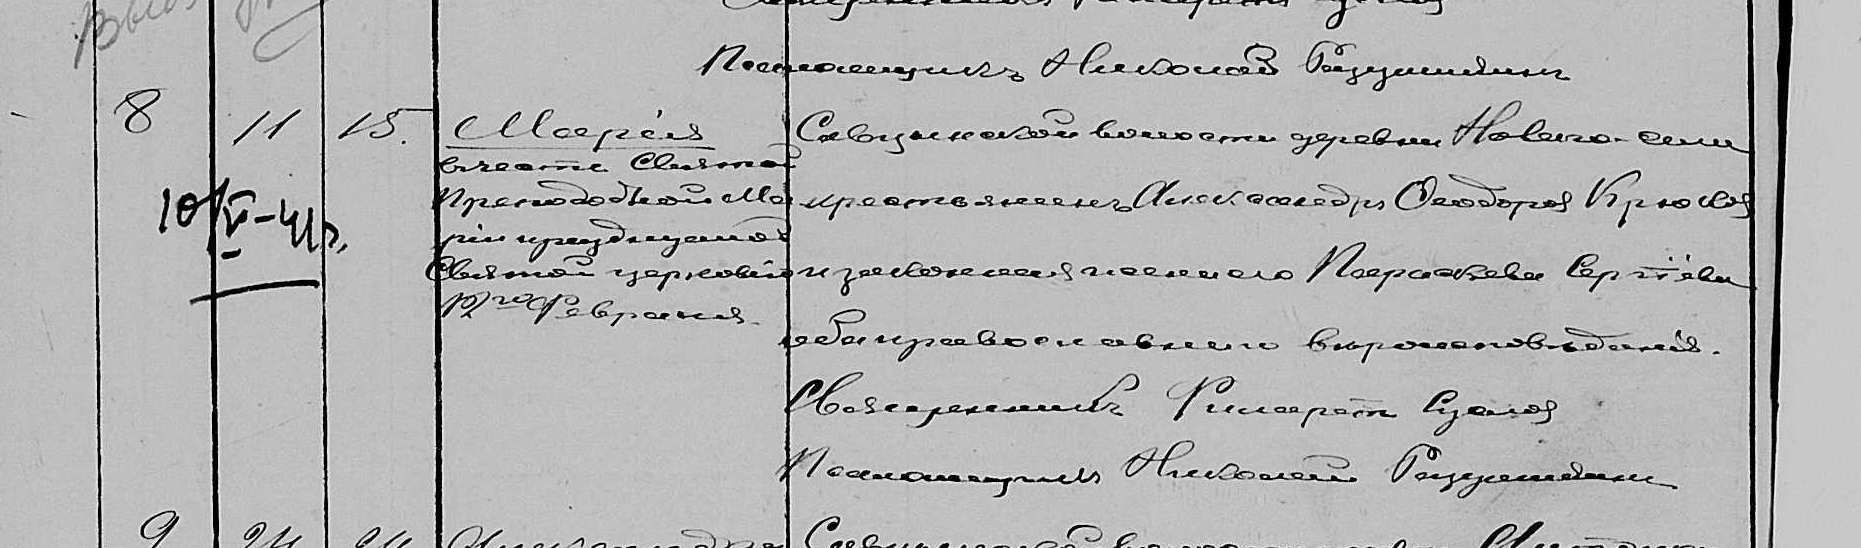 Псаломщикъ Николай
8 11 15. Марія
въ честь Святой
Преподобной Ма
ріи празднуемой
Святой церковію
12го Февраля.
10/V-41г.
волости деревни Новаго-села
крестьянинъ Александръ Ѳеодоровъ Крюковъ
и законная жена его Параскева Сергіева
оба православнаго вѣроисповѣданія.
Священникъ Филаретъ
Псаломщикъ Николай
9 24